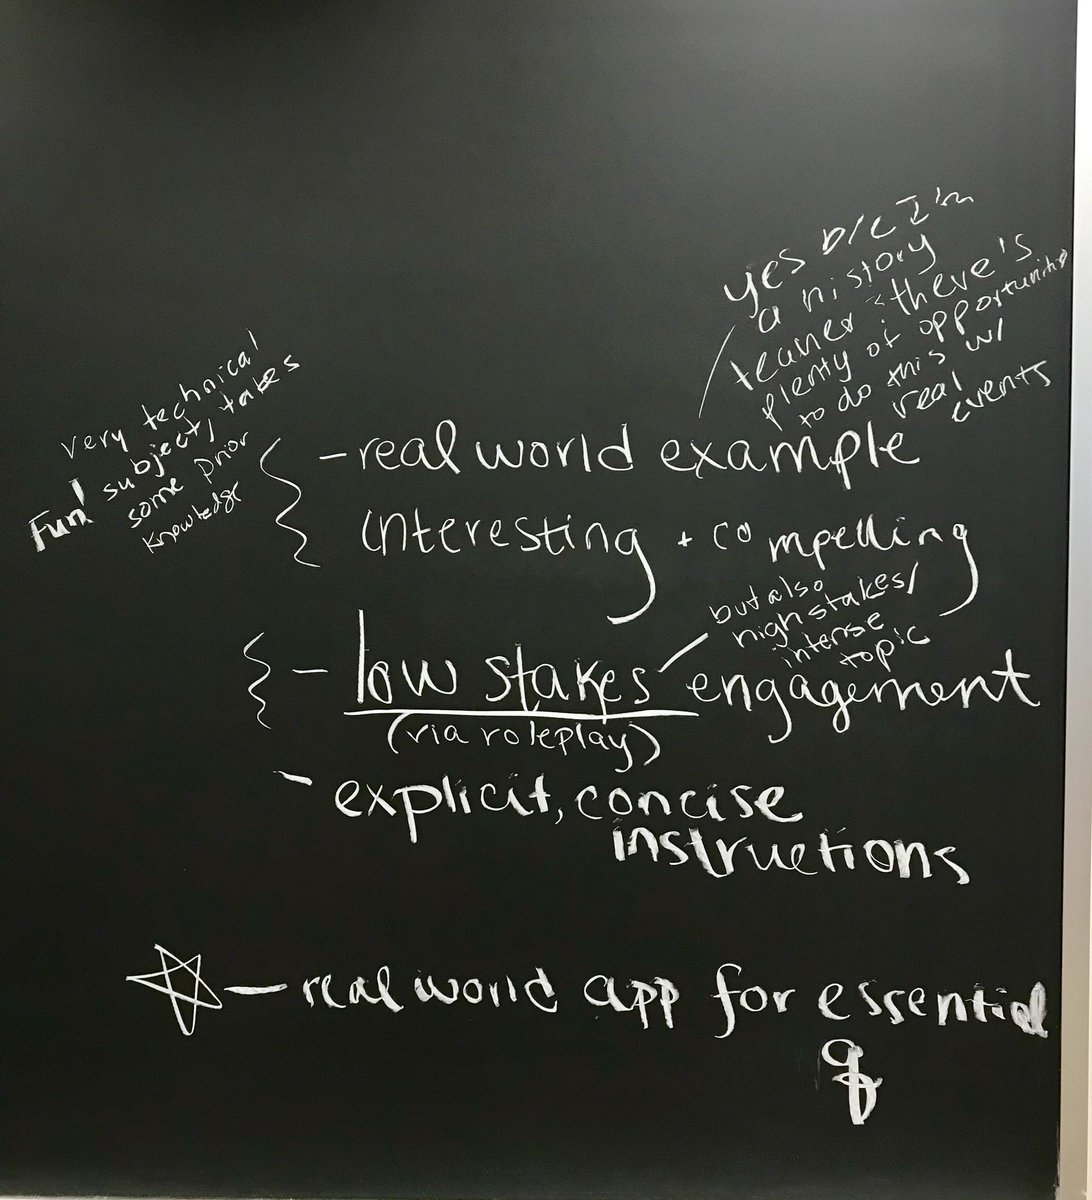 yes b/c I'm
a history
teacher & there's
plenty of opportunities
to do this w/
real
events
very technical
subject, takes
some prior
knowledge
Fun!
- real world example
interesting + compelling
but also
high stakes/
intense
topic
- low stakes engagement
(via roleplay)
- explicit, concise
instructions
- real world app for essential
q